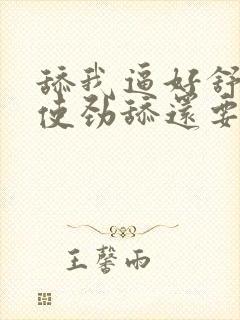 舔我逼好舒
使劲舔還要
王馨雨